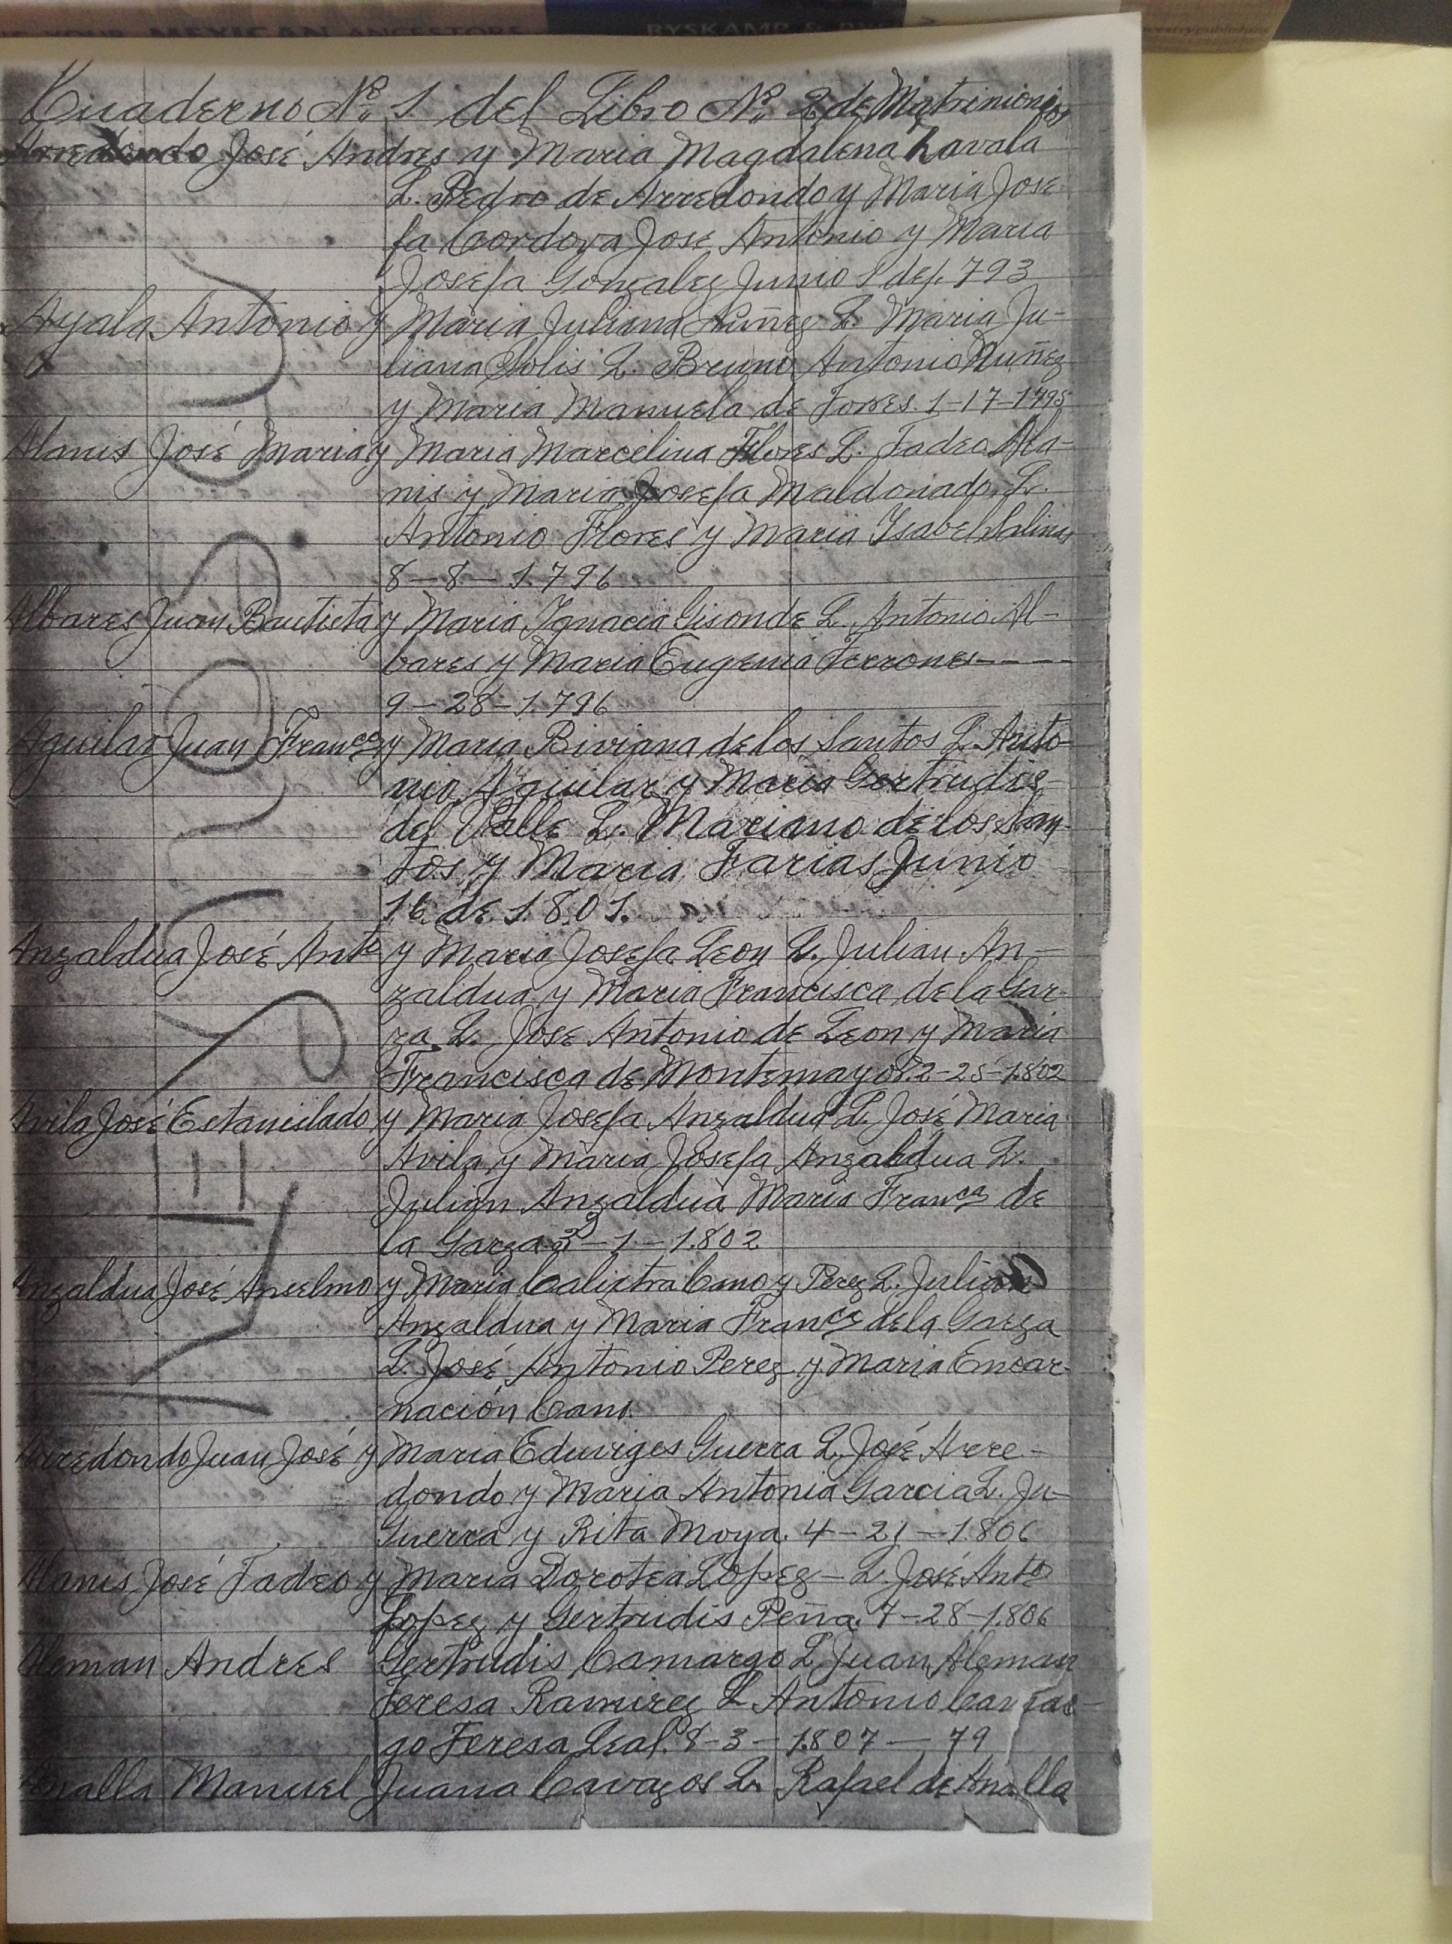 MEXICAN ANCESTORS
RYSKAMP &
Cuaderno Nº 1 del Libro Nº 2 de Matrimonios
Arredondo José Andres y Maria Magdalena Zavala
L. Pedro de Arredondo y Maria Jose
fa Cordova Jose Antonio y Maria
Josefa Gonzalez Junio 1 de 1.793
Ayala Antonio y Maria Juliana Nuñez L. Maria Ju-
liana Solis L. Bruno Antonio Nuñez
y Maria Manuela de Torres. 1-17-1795
Alanis José Maria y Maria Marcelina Flores L. Tadeo Ala-
nis y Maria Josefa Maldonado. L.
Antonio Flores y Maria Ysabel Salinas
8-8-1.796
Albares Juan Bautista y Maria Ygnacia Gisonde L. Antonio Al-
bares y Maria Eugenia Terrones----
9-28-1.796
Aguilar Juan Franco y Maria Biviana de los Santos L. Anto-
nio Aguilar y Maria Gertrudis
del Valle L. Mariano de los San-
tos y Maria Farias Junio
16 de 1.801.
Anzaldua José Anto y Maria Josefa Leon L. Julian An-
zaldua y Maria Francisca de la Gar-
za. L. Jose Antonio de Leon y Maria
Francisca de Montemayor. 2-25-1.802
Avila José Estanislado y Maria Josefa Anzaldua L. José Maria
Avila y Maria Josefa Anzaldua L.
Julian Anzaldua Maria Franca de
la Garza -1-1.802
Anzaldua José Anselmo y Maria Calixtra Cano y Perez L. Julian
Anzaldua y Maria Franca de la Garza
L. José Antonio Perez y Maria Encar-
nación Cano.
Arredondo Juan José y Maria Eduviges Guerra L. José Arre-
dondo y Maria Antonia Garcia L. Ju-
Guerra y Rita Moya. 4-21-1.806
Alanis José Tadeo y Maria Dorotea Lopez- L. José Anto
Lopez y Gertrudis Peña. 7-28-1.806
Aleman Andres Gertrudis Camargo L. Juan Aleman
Teresa Ramirez L. Antonio Camar-
go Teresa Leal. 8-3-1.807-79
Analla Manuel Juana Cavazos L. Rafael de Analla